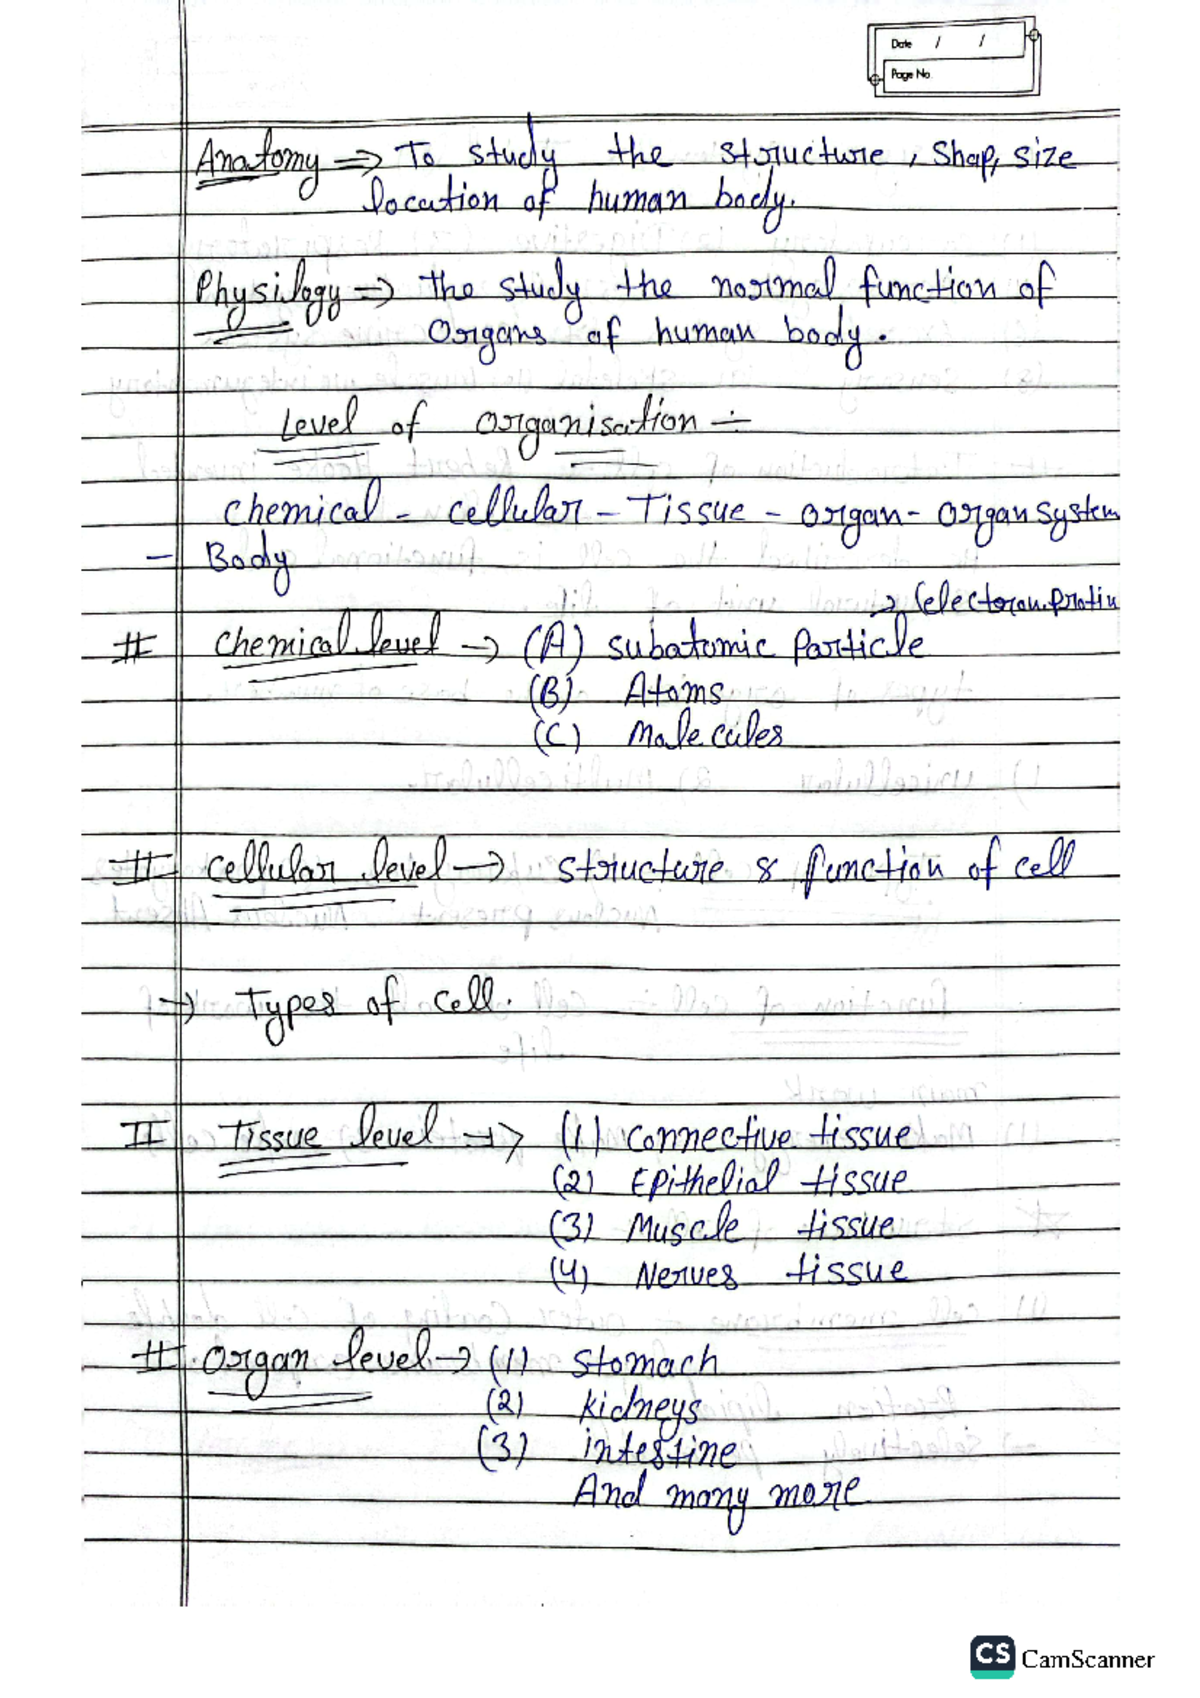 Date / /
Page No
Anatomy ⇒ To study the structure, shap, size
location of human body.
Physilogy ⇒ the study the normal function of
organs of human body.
Level of organisation ÷
chemical - cellular - Tissue - organ - organ system
- Body
→ (electoron. protin
# chemical level → (A) subatomic particle
(B) Atoms
(C) Malecules
# cellular level → structure & function of cell
→ Types of cell.
# Tissue level ⇒ (1) connective tissue
(2) Epithelial tissue
(3) Muscle tissue
(4) Nerves tissue
# organ level → (1) stomach
(2) kidneys
(3) intestine
And many more
CS CamScanner